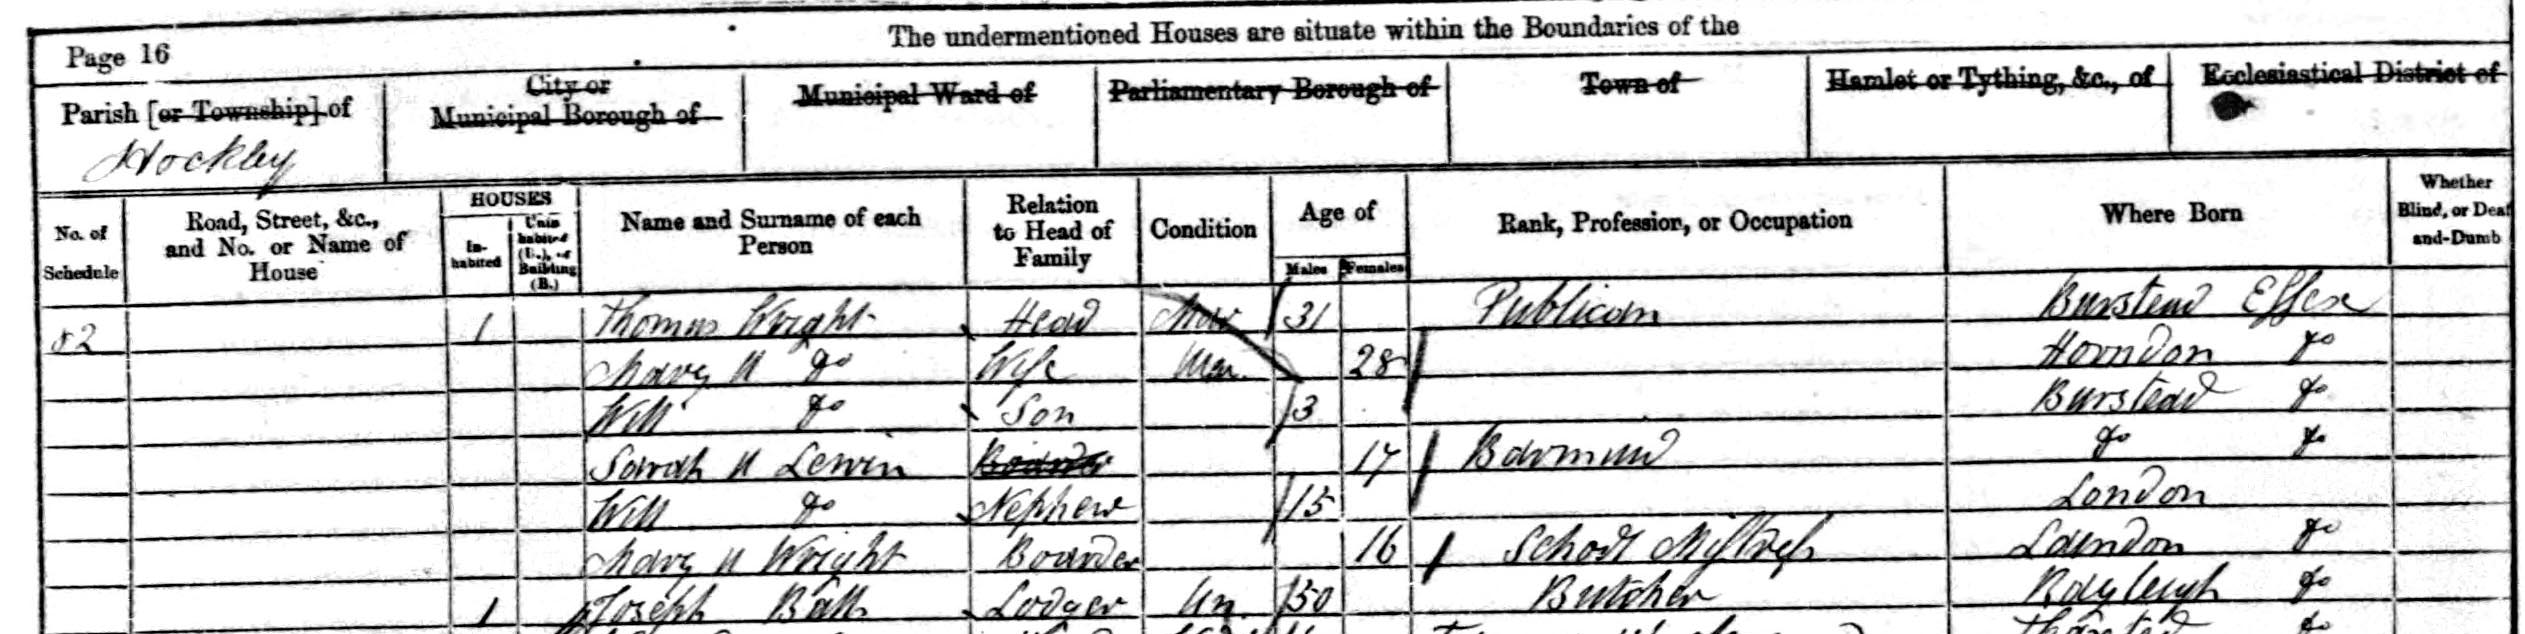 The undermentioned Houses are situate within the Boundaries of the
Page 16
Parish [or Township] of
City or Municipal Borough of
Municipal Ward of
Parliamentary Borough of
Town of
Hamlet or Tything, &c., of
Ecclesiastical District of
Hockley
No. of Schedule
Road, Street, &c., and No. or Name of House
HOUSES
In-habited
Unin habited (U.), or Building (B.)
Name and Surname of each Person
Relation to Head of Family
Condition
Age of
Males
Females
Rank, Profession, or Occupation
Where Born
Whether Blind, or Deaf and-Dumb
52 1 Thomas Wright Head Mar 31 Publican Burstead Essex
Mary A do Wife Mar 28 Horndon do
Will do Son 3 Burstead do
Sarah A Lewin Boarder 17 Barmaid do do
Will do Nephew 15 London
Mary A Wright Boarder 16 School Mistress Laindon do
1 Joseph Ball Lodger Un 50 Butcher Rayleigh do